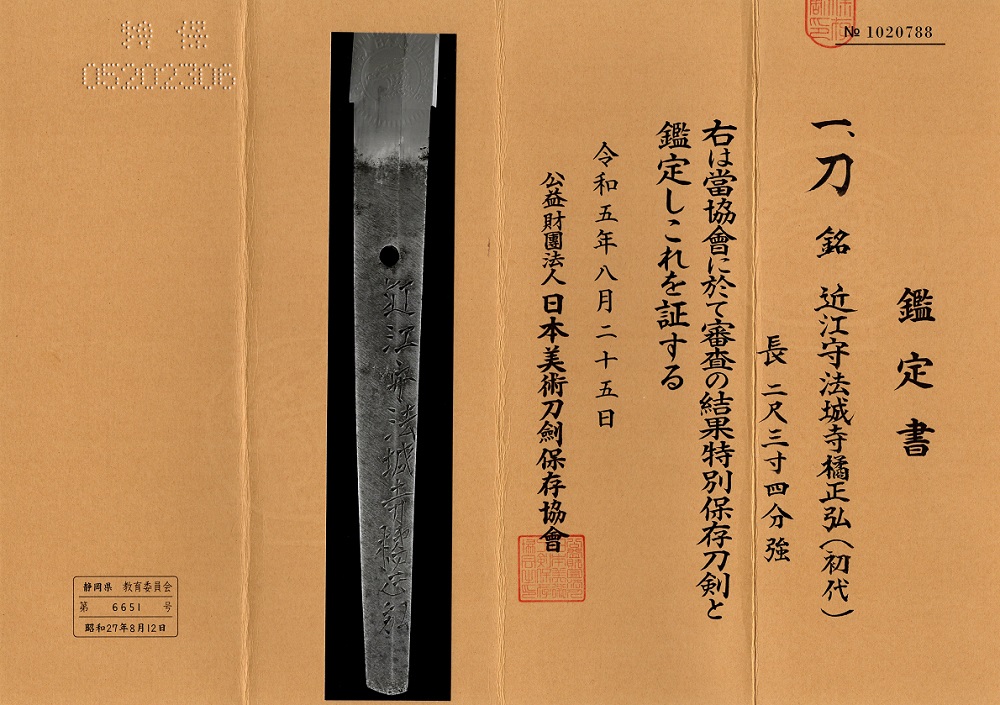 № 1020788
鑑定書
一、刀 銘 近江守法城寺橘正弘(初代)
長 二尺三寸四分強
右は當協會に於て審査の結果特別保存刀剣と
鑑定しこれを証する
令和五年八月二十五日
公益財團法人 日本美術刀劍保存協會
近江守法城寺橘正弘
特保
05202306
静岡県 教育委員会
第 6651 号
昭和27年8月12日